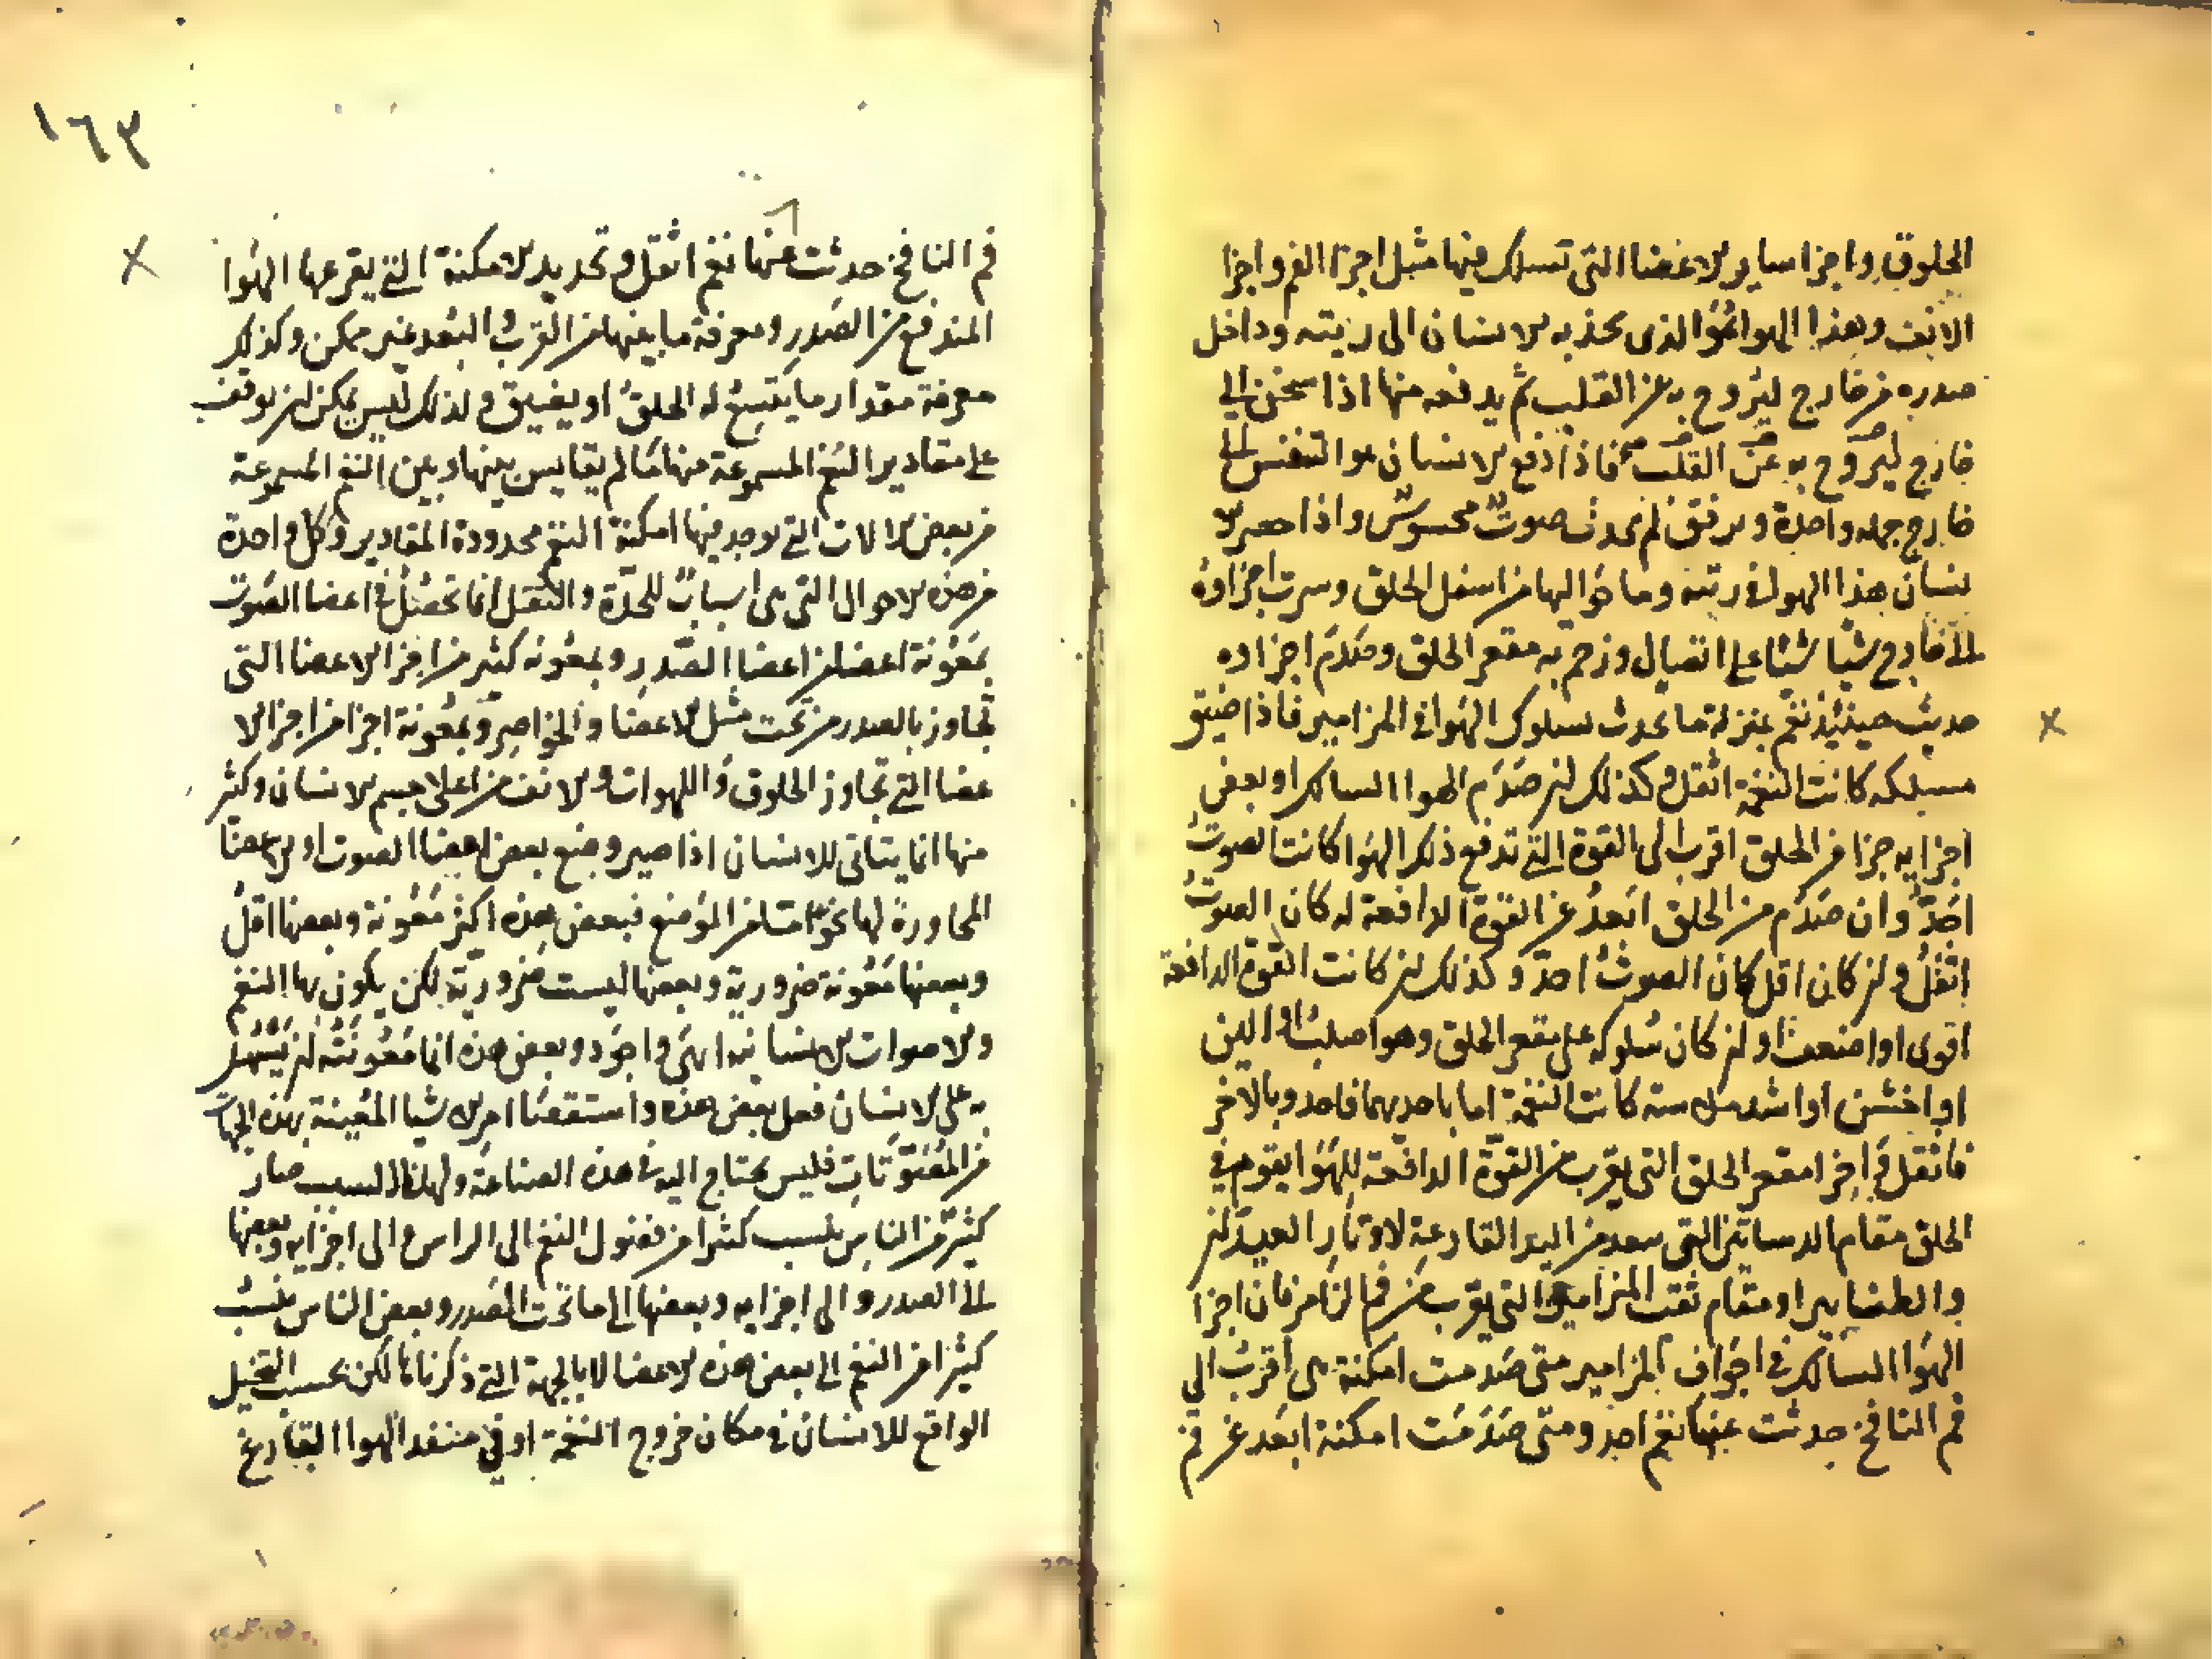 الحلوق واجزا ساير الاعضا التى تسلك فيها مثل اجزا الفم واجزا
الانف وهذا الهوا هو الذى يجذبه الانسان الى ريته وداخل
صدره من خارج ليروح به عن القلب ثم يدفعه منها اذا سخن الى
خارج ليروح به عن القلب فاذا دفع الانسان هوا التنفس الى
خارج جمله واحدة وبرفق لم يحدث صوت محسوس واذا حصر الا
نسان هذا الهوا فى ريته وما حواليها من اسفل الحلق وسرب اجزاوه
الى خارج شيا شيا على اتصال وزحم به مقعر الحلق وصدم اجزاوه
حدثت حينئذ نغم بمنزلة ما يحدث بسلوك الهوا فى المزامير فاذا ضيق
مسلكه كانت النغمة اثقل وكذلك ان صدم الهوا السالك او بعض
اجزايه جزا من الحلق اقرب الى القوة التى تدفع ذلك الهوا كانت الصوت
احد وان صدم من الحلق ابعد عن القوة الدافعة له كان الصوت
اثقل وان كان اقل كان الصوت احد وكذلك ان كانت القوة الدافعة
اقوى او اضعف او ان كان سلوكه على مقعر الحلق وهو اصلب او الين
او اخشن او اشد ملاسة كانت النغمة اما باحدهما فاحد وبالاخر
فاثقل فى اجزا مقعر الحلق التى يقرب من القوة الدافعة للهوا يقوم فى
الحلق مقام الدساتين التى تبعد من اليد القارعة لاوتار العيدان
والطنابير او مقام ثقب المزامير التى يقرب من فم الزامر فان اجزا
الهوا السالك فى اجواف المزامير متى صدمت امكنة هى اقرب الى
فم النافخ حدثت عنها نغم احد ومتى صدمت امكنة ابعد عن فم
١٦٣
فم النافخ حدثت عنها نغم اثقل وتحديد الامكنة التى يقرعها الهوا
المندفع من الصدر ومعرفة ما بينها من القرب والبعد غير ممكن وكذلك
معرفة مقدار ما يتسع له الحلق او يضيق ولذلك ليس يمكن ان يوقف
على مقادير النغم المسموعة منها ما لم يقايس بينها وبين النغم المسموعة
من بعض الالات التى توجد فيها امكنة النغم محدودة المقادير وكل واحدة
من هذه الاحوال التى هى اسباب للحدة والثقل انما تحصل فى اعضا الصوت
بمعونة اعضا من اعضا الصدر وبمعونه كثير من اجزا الاعضا التى
تجاوز بالصدر من تحت مثل الاعضا والخواصر وبمعونة اجزا من اجزا الا
عضا التى تجاوز الحلوق واللهوات والانف من اعلى جسم الانسان وكثير
منها انما يتاتى للانسان اذا صير وضع بعض اعضا الصوت او الاعضا
المجاورة لها نحوا ما من الموضع فبعض هذه اكثر معونة وبعضها اقل
وبعضها معونة ضرورية وبعضها ليست ضرورية لكن يكون بها النغم
والاصوات الانسانيه ابهى واجود وبعض هذه انما معونته ان يسهل
به على الانسان فعل بعض هذه واستقصا امر الاشيا المعينة بهذه الجهات
من المصوتات فليس يحتاج اليه فى هذه الصناعة ولهذا السبب صار
كثير من الناس ينسب كثيرا من فصول النغم الى الراس والى اجزايه وبعضها
الى الصدر والى اجزايه وبعضها الى ما تحت الصدر وبعض الناس ينسب
كثيرا من النغم الى بعض هذه الاعضا لا بالجهة التى ذكرناها لكن بحسب التخيل
الواقع للانسان فى مكان خروج النغمة او فى منفذ الهوا القارع